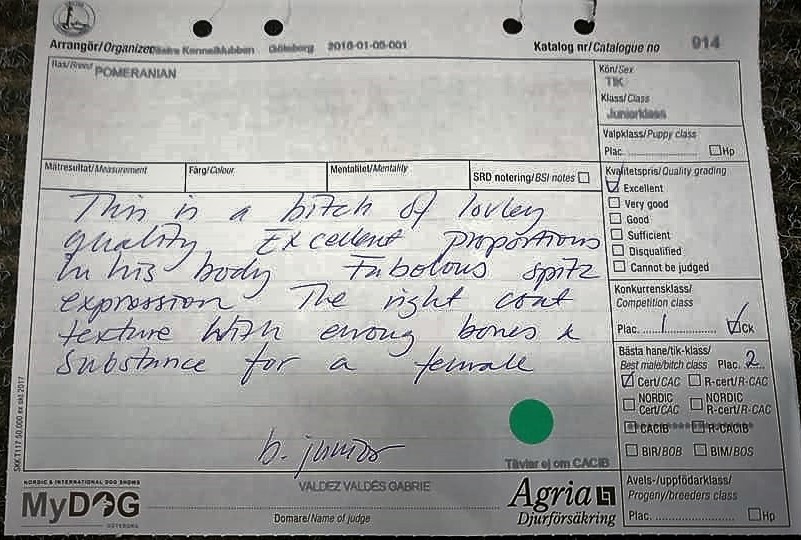 Arrangör/Organizer Västra Kennelklubben Göteborg 2018-01-05-001 Katalog nr/Catalogue no 914
Ras/Breed POMERANIAN
Kön/Sex
TIK
Klass/Class
Juniorklass
Valpklass/Puppy class
Plac. Hp
Mätresultat/Measurement Färg/Colour Mentalitet/Mentality SRD notering/BSI notes
Kvalitetspris/Quality grading
Excellent
Very good
Good
Sufficient
Disqualified
Cannot be judged
This is a bitch of lovley
quality Excellent proportions
in his body Fabolous spitz
expression The right coat
texture with enoug bones &
substance for a female
b. junior
Konkurrensklass/
Competition class
Plac. 1 Ck
Bästa hane/tik-klass/
Best male/bitch class Plac. 2
Cert/CAC R-cert/R-CAC
NORDIC Cert/CAC NORDIC R-cert/R-CAC
CACIB R-CACIB
BIR/BOB BIM/BOS
Tävlar ej om CACIB
Avels-/uppfödarklass/
Progeny/breeders class
Plac. Hp
SKK T117 50.000 ex okt 2017
NORDIC & INTERNATIONAL DOG SHOWS
MyDOG
GÖTEBORG
VALDEZ VALDÉS GABRIE
Domare/Name of judge
Agria
Djurförsäkring